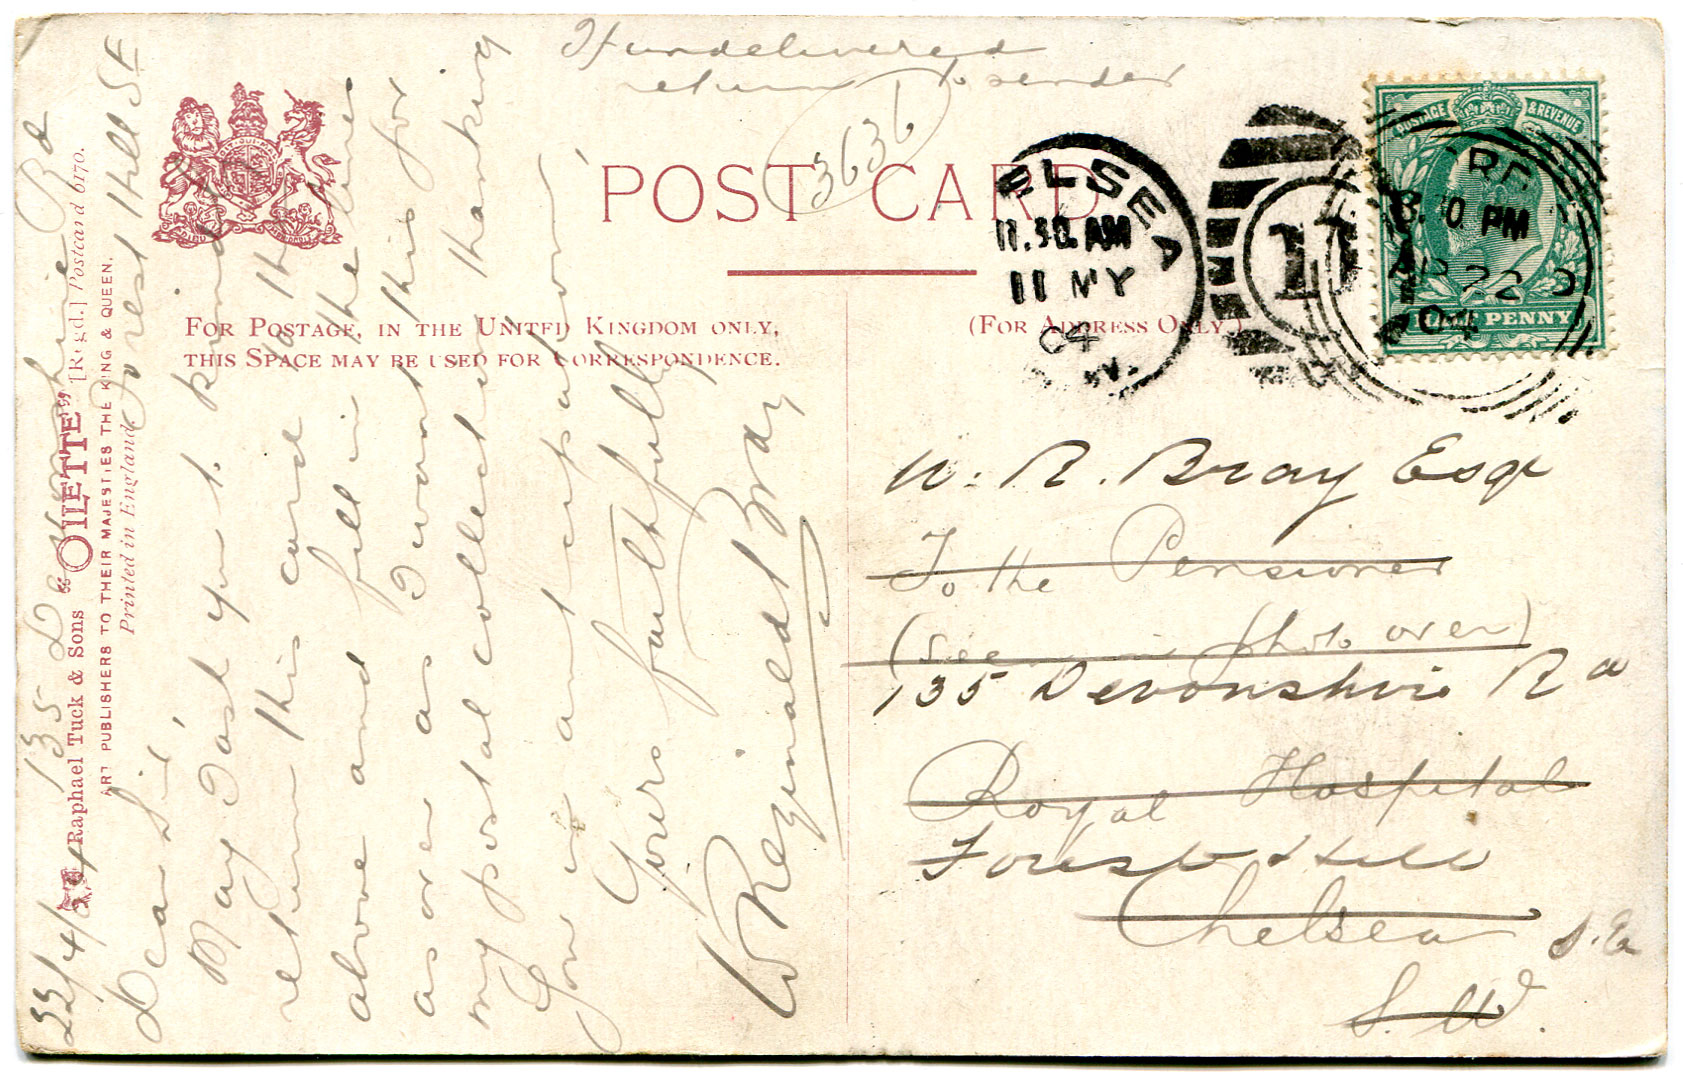 If undelivered
return to sender
3636
POST CARD
FOR POSTAGE, IN THE UNITED KINGDOM ONLY,
THIS SPACE MAY BE USED FOR CORRESPONDENCE.
(FOR ADDRESS ONLY.)
ELSEA
11.30. AM
11 MY
04
POSTAGE & REVENUE
HALF PENNY
PM
22
04
W. R. Bray Esq
To the Pensioner
(See photo over)
135 Devonshire Rd
Royal Hospital
Forest Hill
Chelsea
S.E.
S.W.
Raphael Tuck & Sons "OILETTE" [Regd.] Postcard 6170.
ART PUBLISHERS TO THEIR MAJESTIES THE KING & QUEEN.
Printed in England
22/4/04 135 Devonshire Rd
Forest Hill SE
Dear Sir,
May I ask you to kindly
return this card to the
above and fill in the lines
as over as I want this for
my postal collection thanking
you in anticipation
Yours faithfully
W Reginald Bray